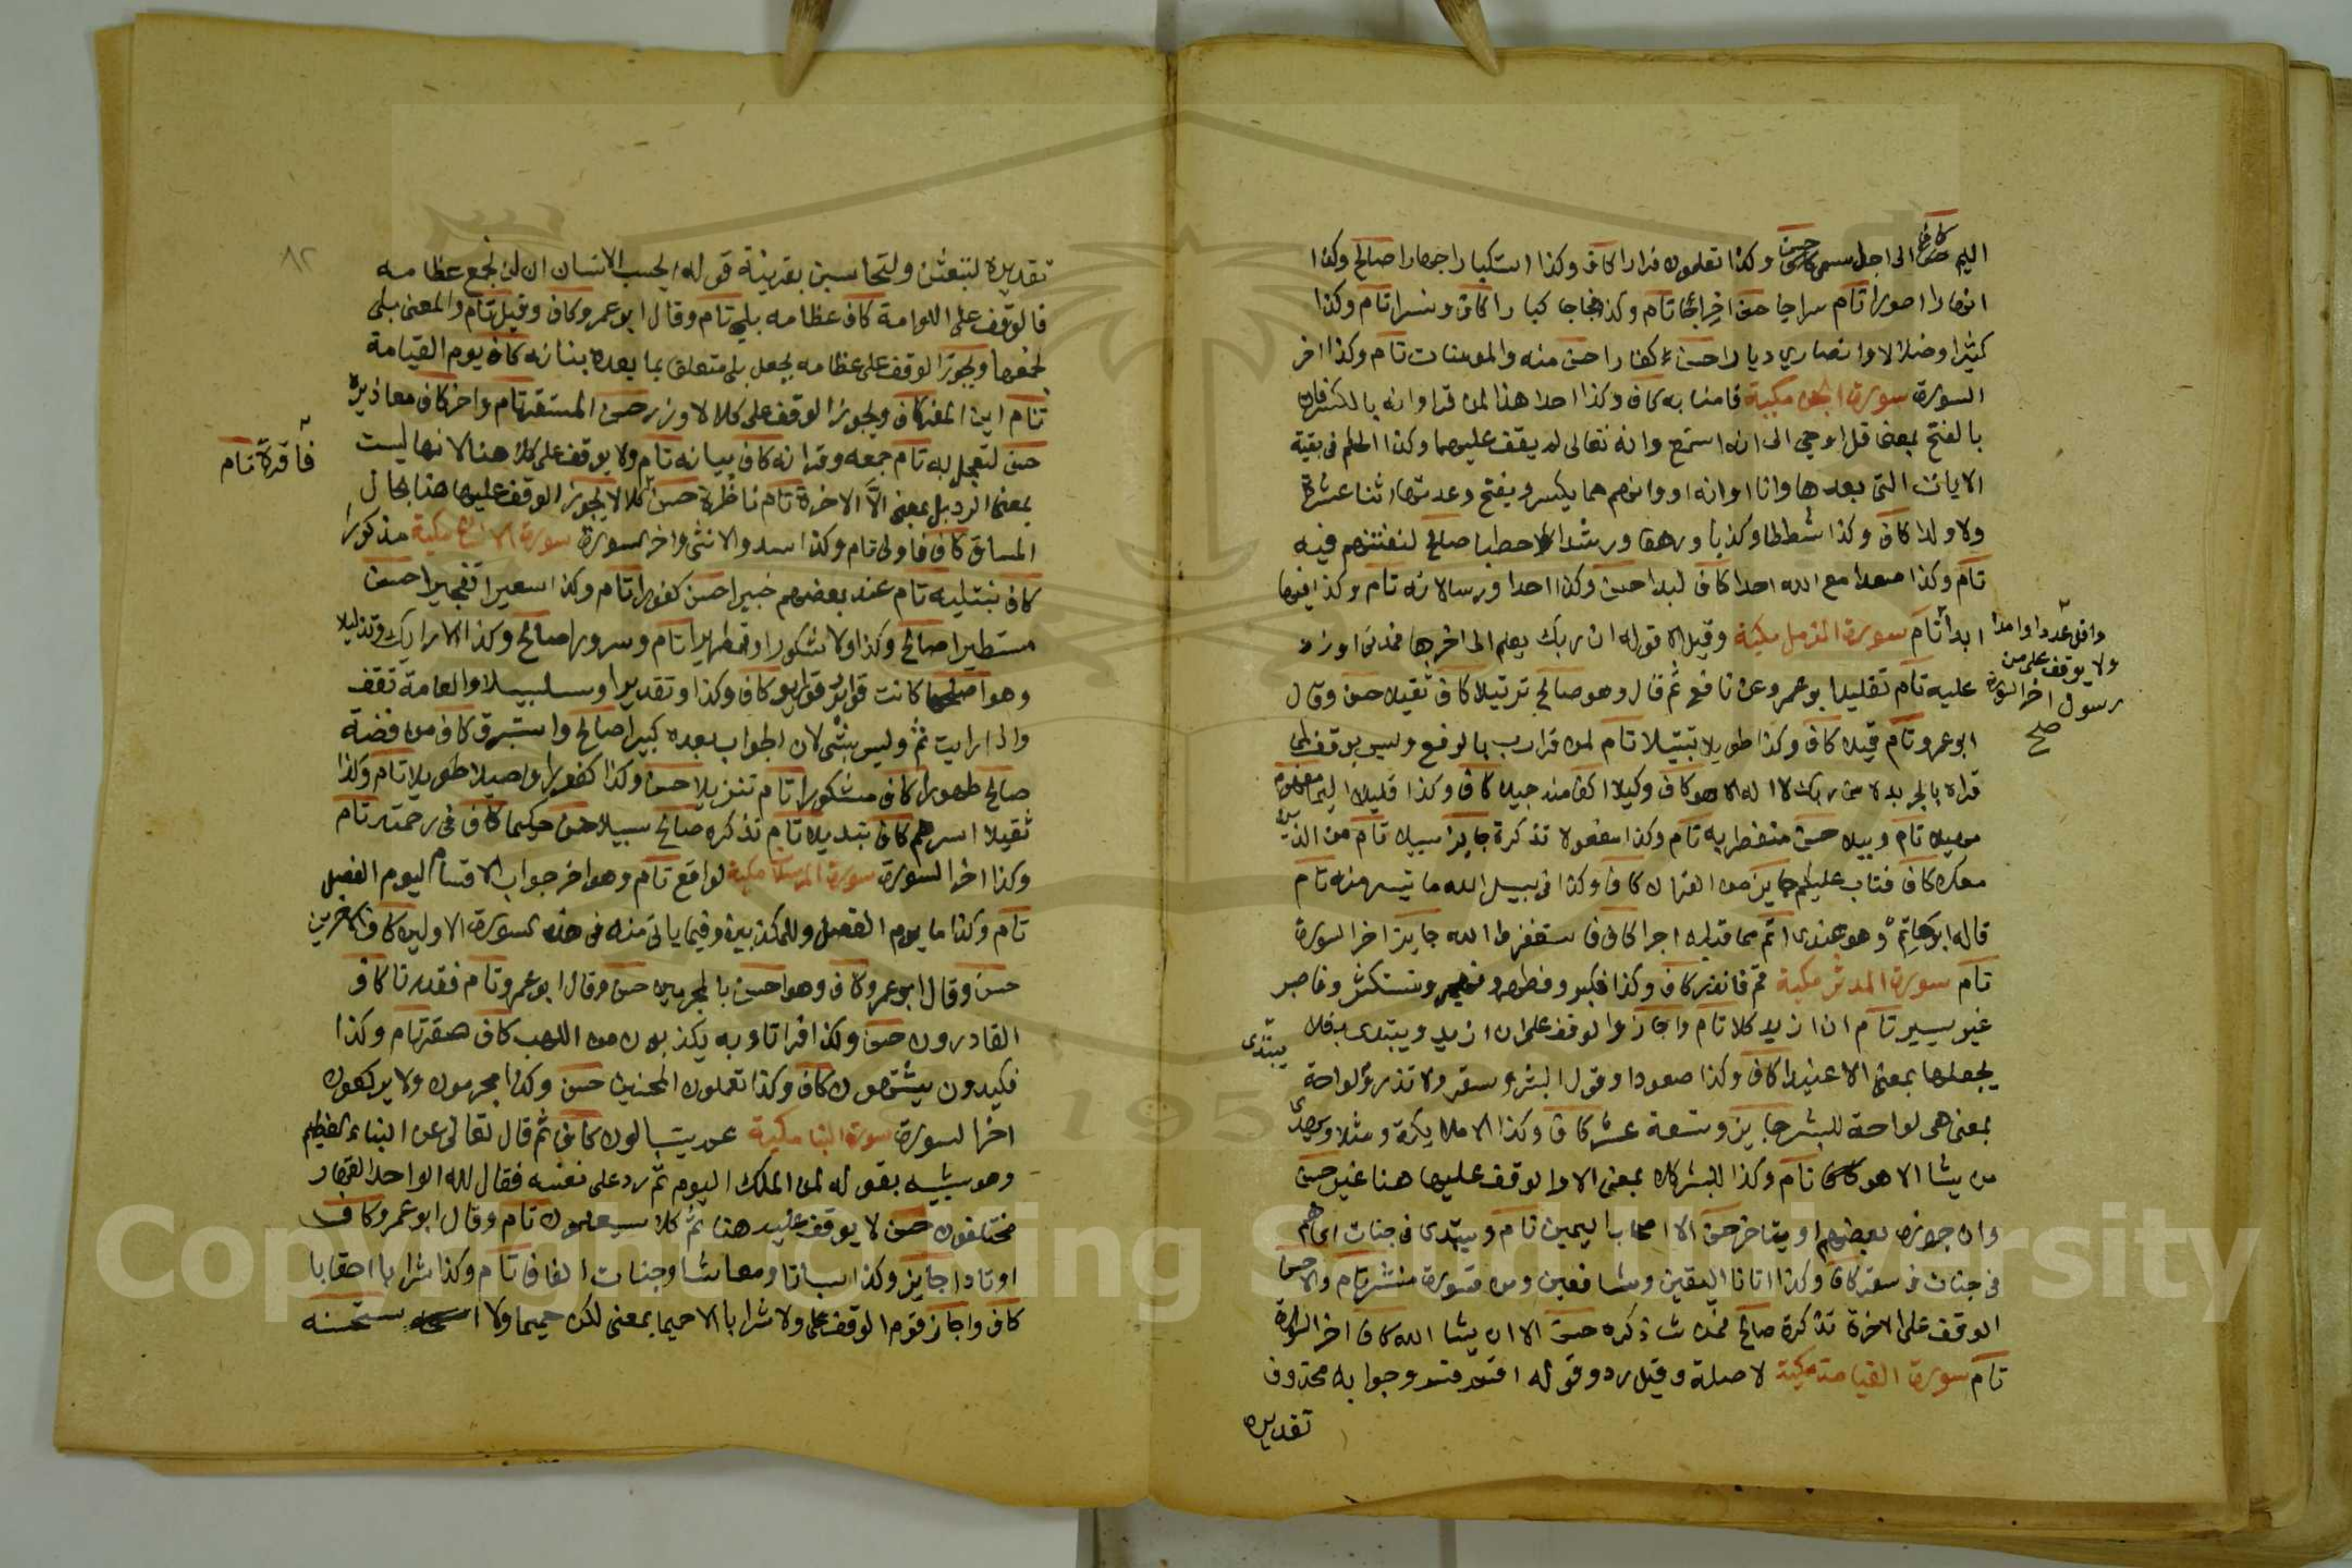 اليم كاف الى اجل مسمى حسن وكذا تعلمون فرارا كاف وكذا استكبارا جهارا صالح وكذا
انهارا صورا تام سراجا حسن اخراجا تام وكذا فجاجا كبارا كاف ونسرا تام وكذا
كثيرا وضلالا وانصارا ديارا حسن كفارا حسن منه والمومنات تام وكذا اخر
السورة سورة الجن مكية فامنا به كاف وكذا احدا هذا لمن قرا وانه بالكسر فان
بالفتح بمعنى قل اوحي الى انه استمع وانه تعالى لم يقف عليهما وكذا الحكم فى بقية
الايات التى بعدها وانا او انه او وانهم مما يكسر ويفتح وعدتها اثنا عشرة
ولا ولدا كاف وكذا شططا وكذبا ورهقا ورشدا حطبا صالح لنفتنهم فيه
تام وكذا صعدا مع الله احدا كاف لبدا حسن وكذا احدا ورسالاته تام وكذا فيها
ابدا تام سورة المزمل مكية وقيل الا قوله ان ربك يعلم الى اخرها فمدنى او زد
واقل عددا وامدا
ولا يوقف على من
رسول اخر السورة
صح
عليه تام تقليدا بو عمرو عن نافع ثم قال وهو صالح ترتيلا كاف ثقيلا حسن وقال
ابو عمرو تام قيلا كاف وكذا طويلا تبتيلا تام لمن قرا رب بالرفع وليس بوقف لمن
قراه بالجر بدلا من ربك لا اله الا هو كاف وكيلا اكفى منه جميلا كاف وكذا قليلا اليما مفهوم
مهيلا تام وبيلا حسن منفطر به تام وكذا مفعولا تذكرة جايز سبيلا تام من الذين
معك كاف فتاب عليكم جايز من القران كاف وكذا فى سبيل الله ما تيسر منه تام
قاله ابو حاتم وهو عندى اتم مما قبله اجرا كاف واستغفروا الله جايز اخر السورة
تام سورة المدثر مكية قم فانذر كاف وكذا فكبر وفطهر وفاهجر وتستكثر وفاصبر
غير يسير تام ان ازيد كلا تام واجازوا الوقف على ان ازيد ويبتدى بكلا
يبتدى
يجعلها بمعنى الا عنيدا كاف وكذا صعودا وقول البشر وسقر ولا تذر ولواحة
بمعنى هى لواحة للبشر جايز وتسعة عشر كاف وكذا الا ملايكة ومثلا ويهدى
من يشا الا هو تام وكذا للبشر كلا بمعنى الا والوقف عليها هنا غير حسن
وان جوزه بعضهم او يتاخر حسن الا اصحاب اليمين تام ويبتدى فى جنات اى هم
فى جنات فى سقر كاف وكذا اتانا اليقين وشافعين ومن قسورة منشرة تام والاحسن
الوقف على الاخرة تذكرة صالح فمن شا ذكره حسن الا ان يشا الله كاف اخر السورة
تام سورة القيامة مكية لا صلة وقيل رد وقوله اقسم قسم وجوابه محذوف
تقديره
٨٢
تقديره لتبعثن ولتحاسبن بقرينة قوله ايحسب الانسان ان لن نجمع عظامه
فالوقف على اللوامة كاف عظامه بلى تام وقال ابو عمرو كاف وقيل تام والمعنى بلى
نجمعها ويجوز الوقف على عظامه بجعل بلى متعلق بما بعده بنانه كاف يوم القيامة
تام اين المفر كاف ويجوز الوقف على كلا لا وزر حسن المستقر تام واخر كاف معاذيره
حسن لتعجل به تام جمعه وقرانه كاف بيانه تام ولا يوقف على كلا هنا لانها ليست
فاقرة تام
بمعنى الرد بل بمعنى الا الاخرة تام ناظرة حسن كلا لا يجوز الوقف عليها هنا بحال
المساق كاف فاولى تام وكذا سدى والانثى واخر السورة سورة الانسان مكية مذكورا
كاف نبتليه تام عند بعضهم خبيرا حسن كفورا تام وكذا سعيرا تفجيرا حسن
مستطيرا صالح وكذا ولا شكورا وقمطريرا تام وسرورا صالح وكذا الارايك وتذليلا
وهو اصلح كانت قواريرا قوارير كاف وكذا وتقديرا وسلسبيلا والعامة تقف
واذا رايت ثم وليس بشى لان الجواب بعده كبيرا صالح واستبرق كاف من فضة
صالح طهورا كاف مشكورا تام تنزيلا حسن وكذا كفورا واصيلا طويلا تام وكذا
ثقيلا اسرهم كاف تبديلا تام تذكره صالح سبيلا حسن حكيما كاف فى رحمته تام
وكذا اخر السورة سورة المرسلات مكية لواقع تام وهو اخر جواب الاقسام ليوم الفصل
تام وكذا ما يوم الفصل وللمكذبين وفيما ياتى منه فى هذه السورة الاولين كاف الاخرين
حسن وقال ابو عمرو كاف وهو احسن بالمجرمين حسن وقال ابو عمرو تام فقدرنا كاف
القادرون حسن وكذا فراتا وبه تكذبون من اللهب كاف صفر تام وكذا
فكيدون يشتهون كاف وكذا تعملون المحسنين حسن وكذا مجرمون ولا يركعون
اخر السورة سورة النبا مكية عم يتسالون كاف ثم قال تعالى عن النباء العظيم
وهو شبيه بقوله لمن الملك اليوم ثم رد على نفسه فقال لله الواحد القهار
مختلفون حسن لا يوقف عليه هنا ثم كلا سيعلمون تام وقال ابو عمرو كاف
اوتادا جايز وكذا سباتا ومعاشا وجنات الفافا تام وكذا شرابا احقابا
كاف واجاز قوم الوقف على ولا شرابا الا حميما بمعنى لكن حميما ولا استحسنه
Copyright © King Saud University
195